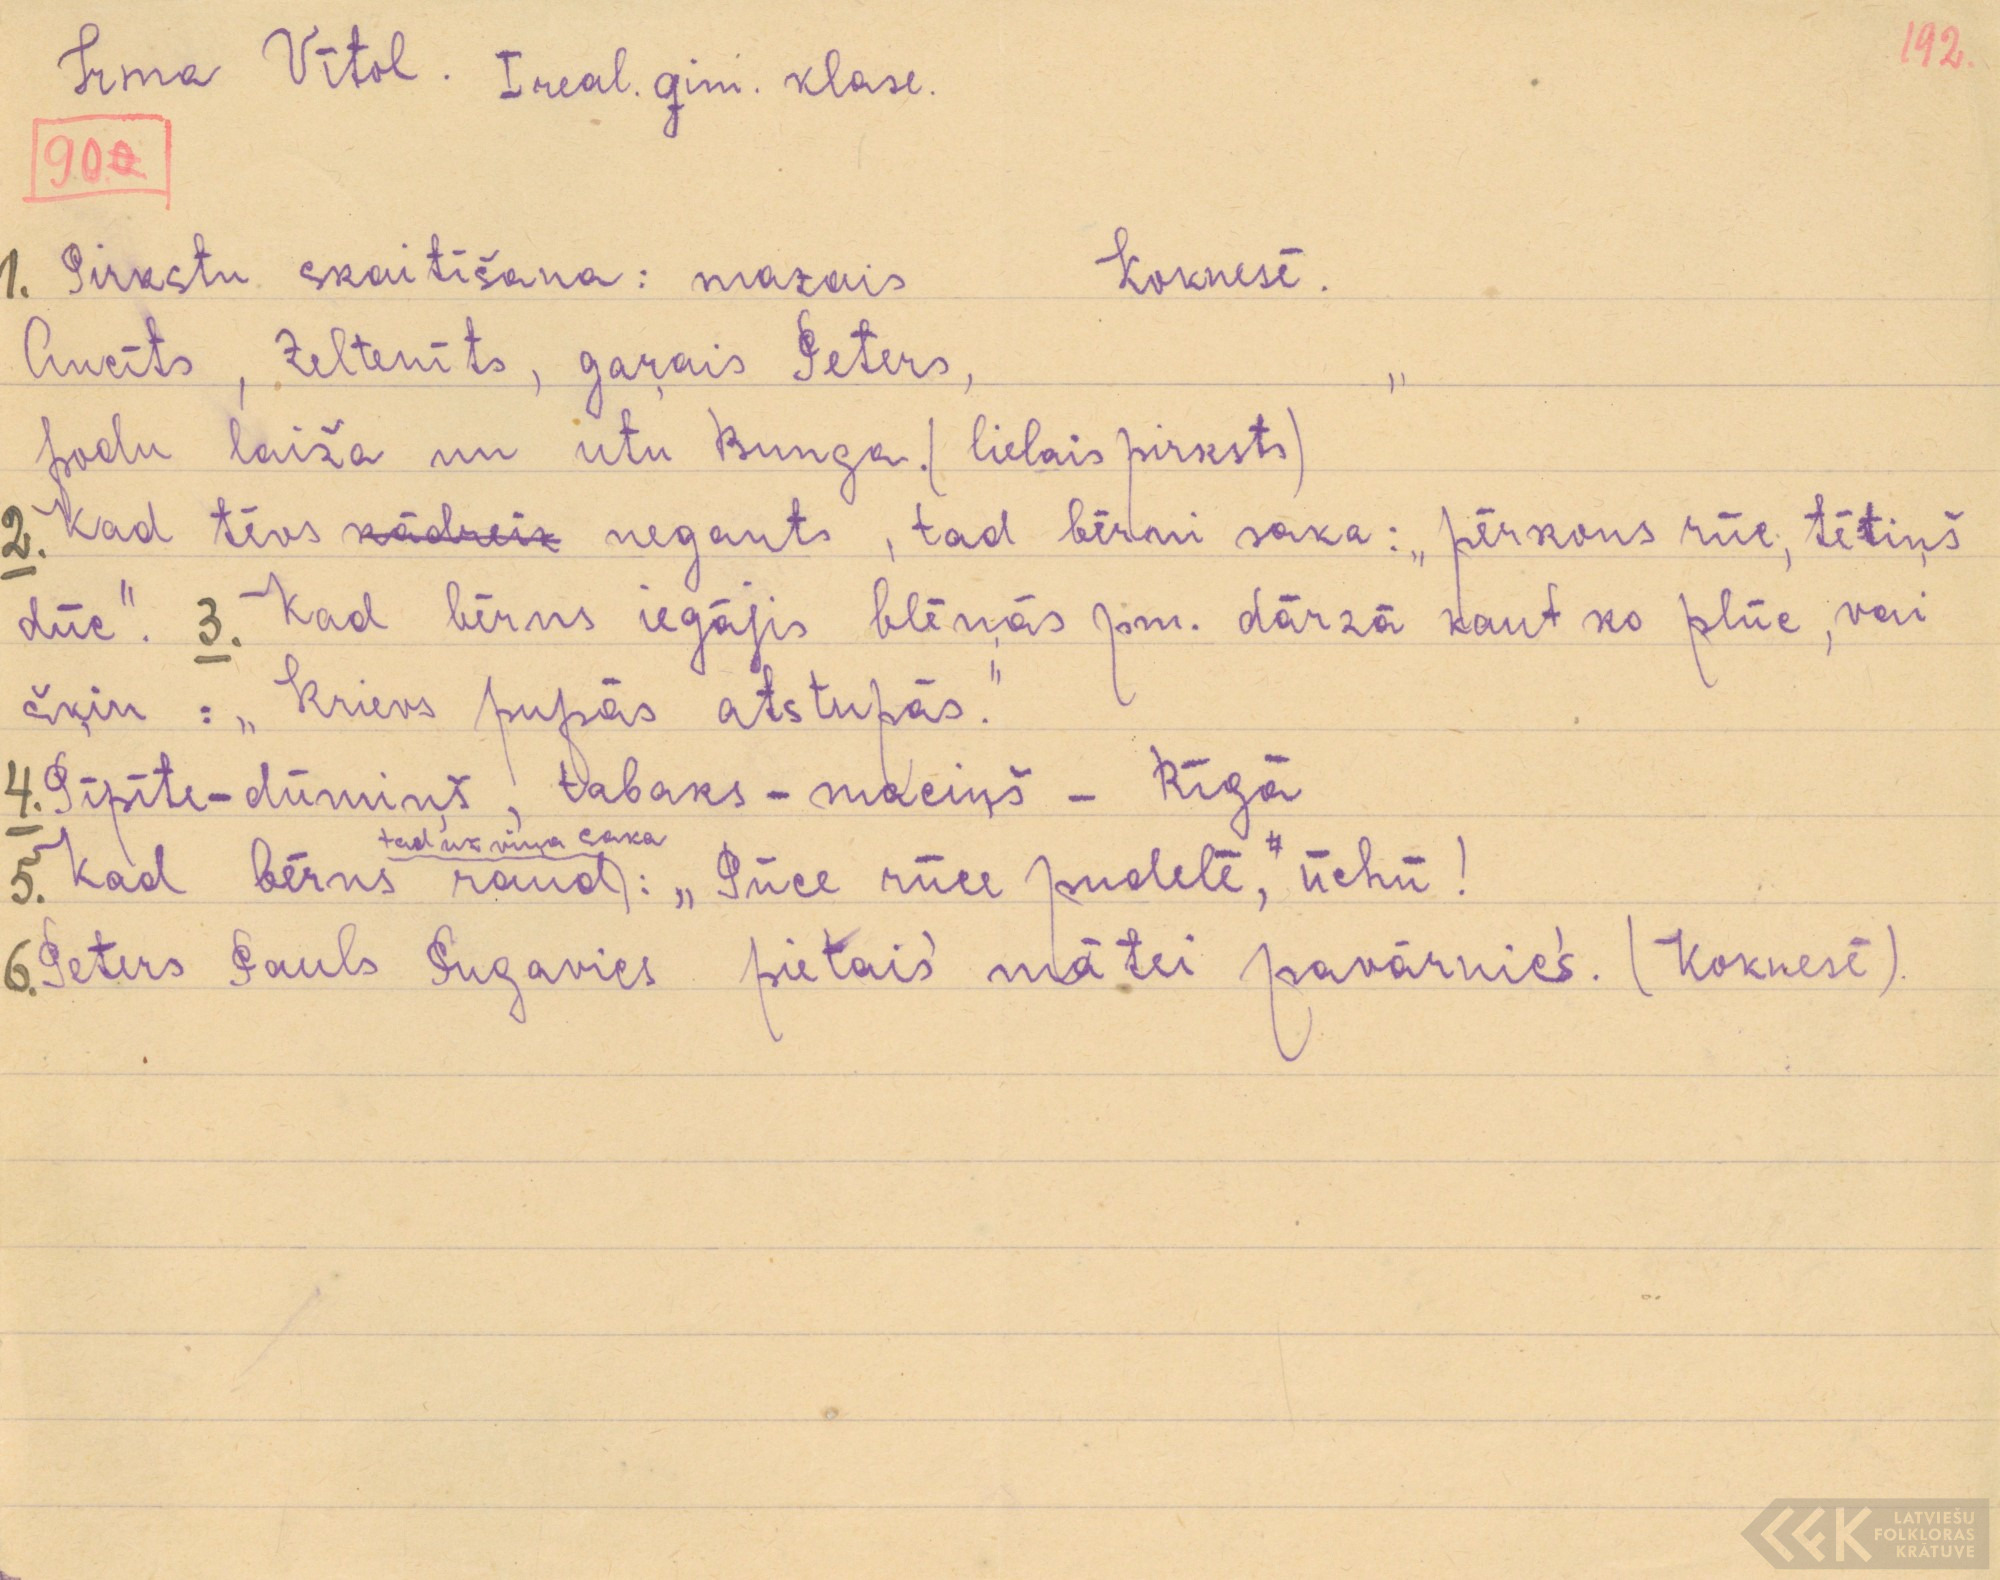 192.
Irma Vītol. I real. gim. klase.
90
1. Pirkstu skaitīšana: mazais Koknesē.
Ancīts, Zeltenīts, gaŗais Peters, "
podu laiža un utu Bunga. (lielais pirksts)
2. Kad tēvs kādreiz negants, tad bērni saka: „pērkons rūc, tētiņš
dūc". 3. Kad bērns iegājis blēņās pm. dārzā kaut ko plūc, vai
šķin: „Krievs pupās atstupās."
4. Pīpīte-dūmiņš, tabaks-maciņš - Rīgā
tad uz viņa saka
5. Kad bērns raud: „Pūce rūce pudelē," ūchū!
6. Peters Pauls Pugavics pietais mātei pavārnics. (Koknesē).
LATVIEŠU
FOLKLORAS
KRĀTUVE